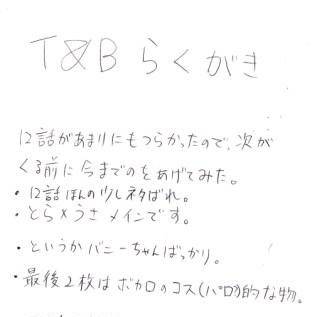 T&Bらくがき
12話があまりにもつらかったので、次が
くる前に今までのをあげてみた。
・12話ほんの少しネタばれ。
・とら×うさメインです。
・というかバニーちゃんばっかり。
・最後2枚はボカロのコス(パロ)的な物。